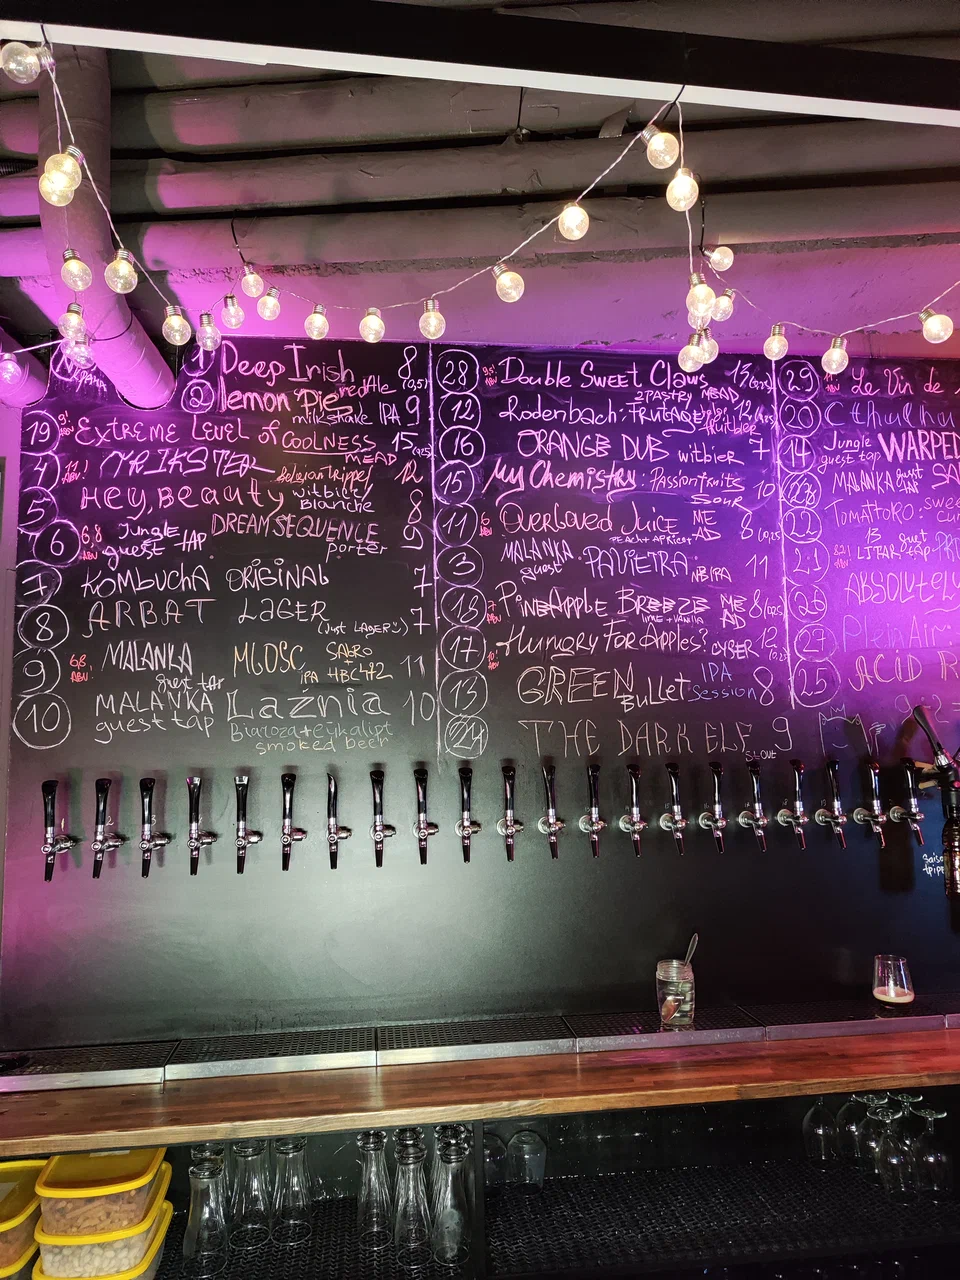 1 Deep Irish red Ale 8 (0,5)
2 lemon Pie milkshake IPA 9
19 9! ABV Extreme Level of Coolness MEAD 15 (0,25)
4 11! ABV Belgian Trippel 12
5 Hey, Beauty witbier/ Blanche 8
6 6,8 ABV Jungle guest tap DREAM SEQUENCE porter 9
7 KOMBUCHA ORIGINAL 7
8 ARBAT LAGER (Just LAGER:) 7
9 6,8! ABV. MALANKA guest tap MŁOŚĆ SABRO + HBC 472 IPA 11
10 MALANKA guest tap Łaźnia 10
smoked beer
28 9,5! ABV Double Sweet Claws PASTRY MEAD 13 (0,25)
12 Rodenbach: fruitage
16 ORANGE DUB witbier 7
15 My Chemistry: Passionfruits Sour 10
11 Overloved Juice PEACH+APRICOT MEAD 8 (0,25)
3 MALANKA guest PAVIETRA NEIPA 11
18 PineApple Breeze lime + vanilla MEAD 8 (0,25)
17 Hungry For Apples? CYSER 12
13 GREEN Bullet Session IPA 8
24 THE DARK ELF Stout 9
29 Le Vin de
20 Cthulhu
14 Jungle guest tap WARPED
MALANKA guest tap
22 TOMATTORO: swee
21 13 guest
26 ABSOLUTELY
27 Plein Air:
25 ACID R